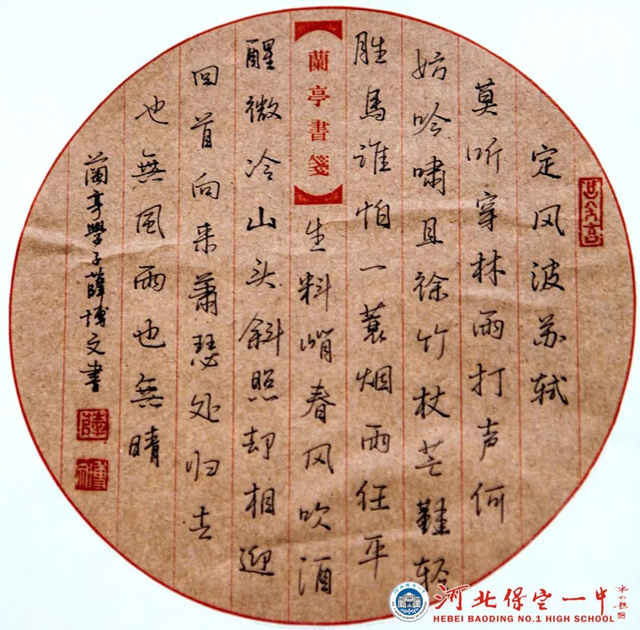 定风波苏轼
莫听穿林雨打声何
妨吟啸且徐竹杖芒鞋轻
胜马谁怕一蓑烟雨任平
蘭亭書箋
生料峭春风吹酒
醒微冷山头斜照却相迎
回首向来萧瑟处归去
也無风雨也無晴
蘭亭學子薛博文書
河北保定一中
HEBEI BAODING NO.1 HIGH SCHOOL